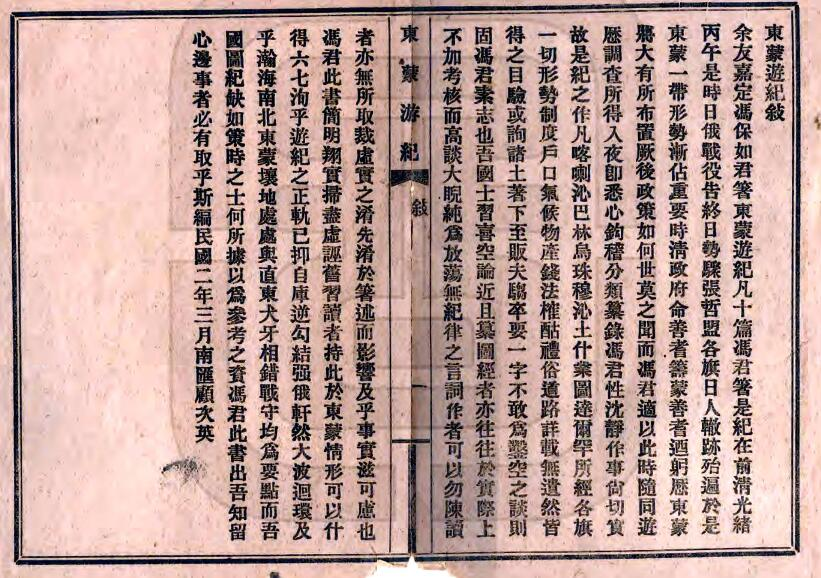 東蒙遊紀敍
余友嘉定馮保如君箸東蒙遊紀凡十篇馮君箸是紀在前清光緒
丙午是時日俄戰役告終日勢驟張哲盟各旗日人轍跡殆遍於是
東蒙一帶形勢漸佔重要時清政府命善耆籌蒙善耆迺躬歷東蒙
將大有所布置厥後政策如何世莫之聞而馮君適以此時隨同遊
歷調查所得入夜卽悉心鉤稽分類纂錄馮君性沈靜作事尙切實
故是紀之作凡喀喇沁巴林烏珠穆沁土什業圖達爾罕所經各旗
一切形勢制度戶口氣候物產錢法榷酤禮俗道路詳載無遺然皆
得之目驗或詢諸土著下至販夫騶卒要一字不敢爲鑿空之談則
固馮君素志也吾國士習喜空論近且纂圖經者亦往往於實際上
不加考核而高談大睨純爲放蕩無紀律之言詞作者可以勿陳讀
東蒙游紀
敍
一
者亦無所取裁虛實之淆先淆於箸述而影響及乎事實滋可慮也
馮君此書簡明翔實掃盡虛誣舊習讀者持此於東蒙情形可以什
得六七洵乎遊紀之正軌已抑自庫逆勾結强俄軒然大波迴環及
乎瀚海南北東蒙壤地處處與直東犬牙相錯戰守均爲要點而吾
國圖紀缺如策時之士何所據以爲參考之資馮君此書出吾知留
心邊事者必有取乎斯編民國二年三月南匯顧次英